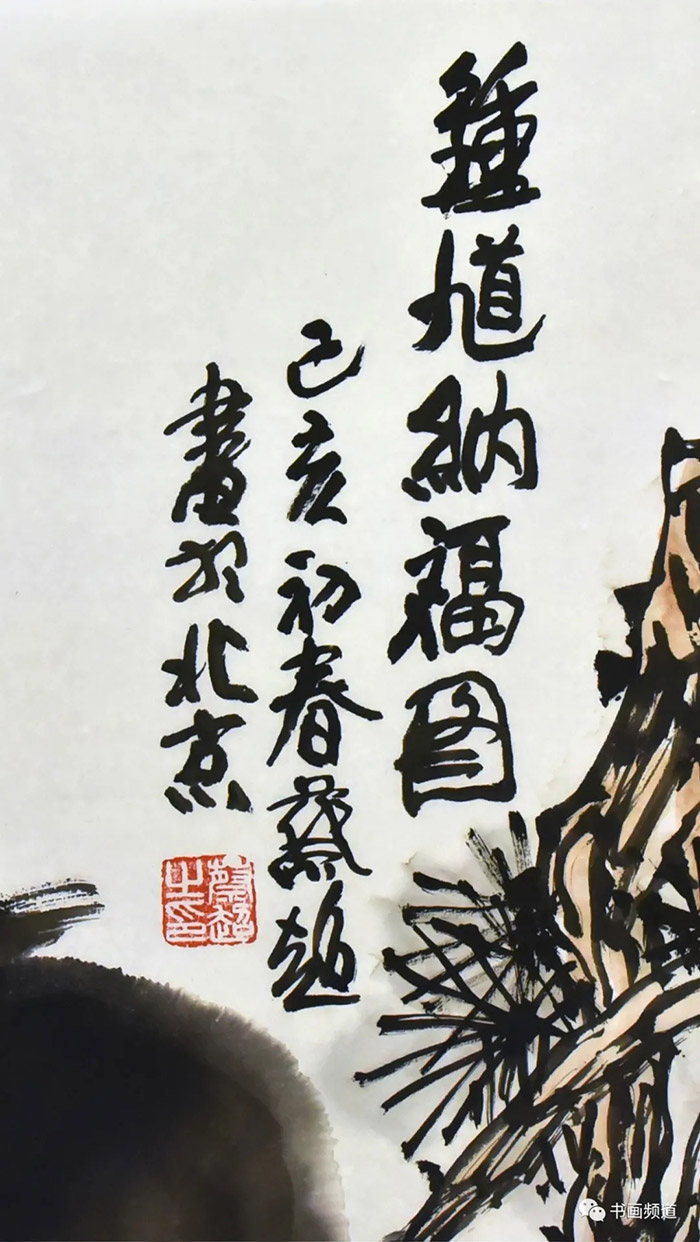 鍾馗納福图
己亥初春蔡超
畫於北京
蔡超之印
书画频道